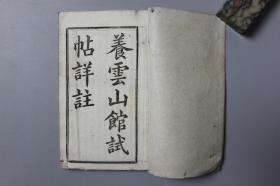 養雲山館試
帖詳註